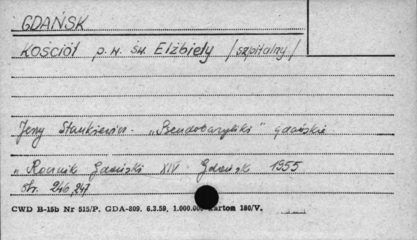 GDAŃSK
Kościół p.w. św. Elżbiety /szpitalny/
Jerzy Stankiewicz. „Pseudobazyliki" gdańskie
„Rocznik Gdański XIV - Gdańsk 1955
str. 246, 247
CWD B-15b Nr 515/P. GDA-809. 6.3.59. 1.000.00 Karton 180/V.